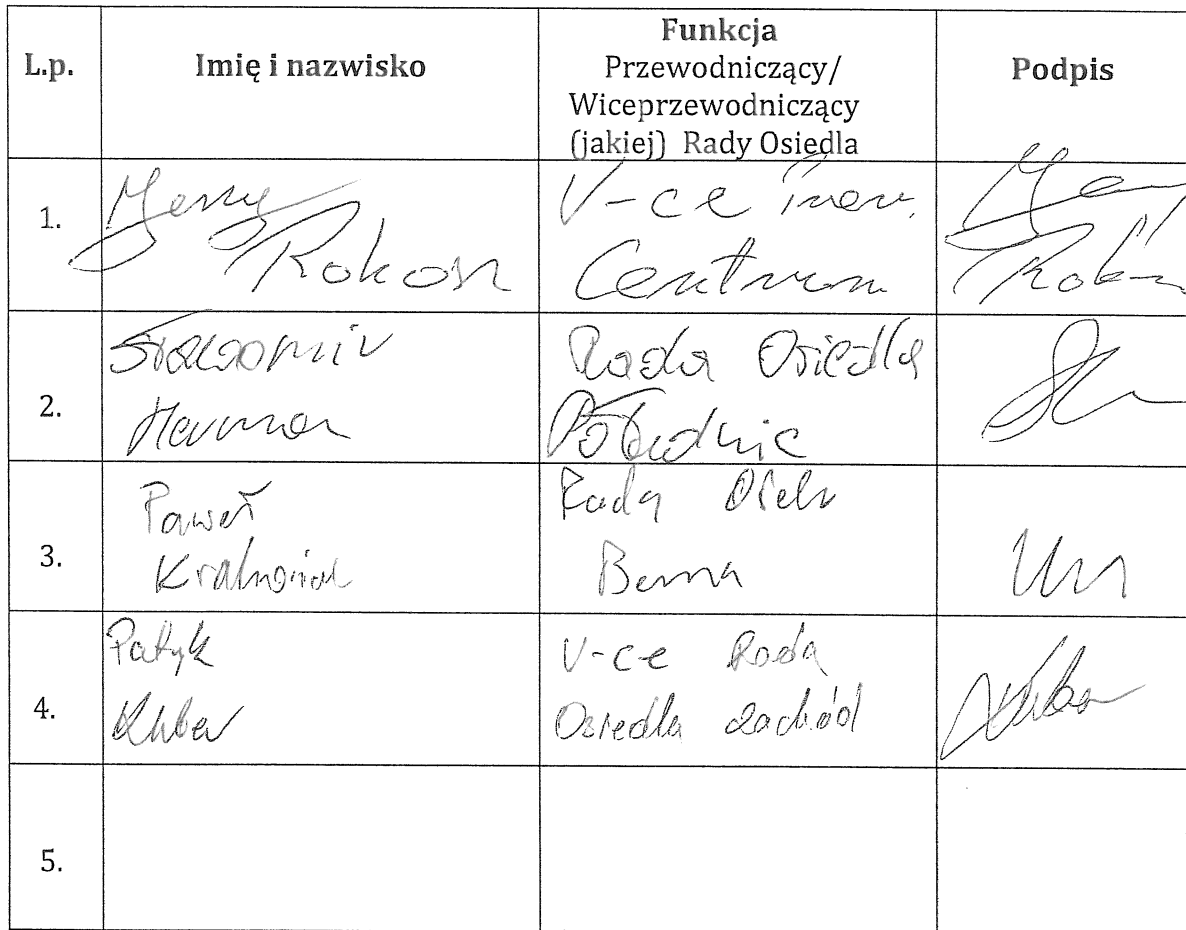 L.p.
Imię i nazwisko
Funkcja
Przewodniczący/
Wiceprzewodniczący
(jakiej) Rady Osiedla
Podpis
1.
Jerzy
Rokosz
V-ce
Centrum
2.
Sławomir
Rada Osiedla
Południe
3.
Paweł
Rada
4.
Patryk
V-ce Rada
Osiedla Zachód
5.